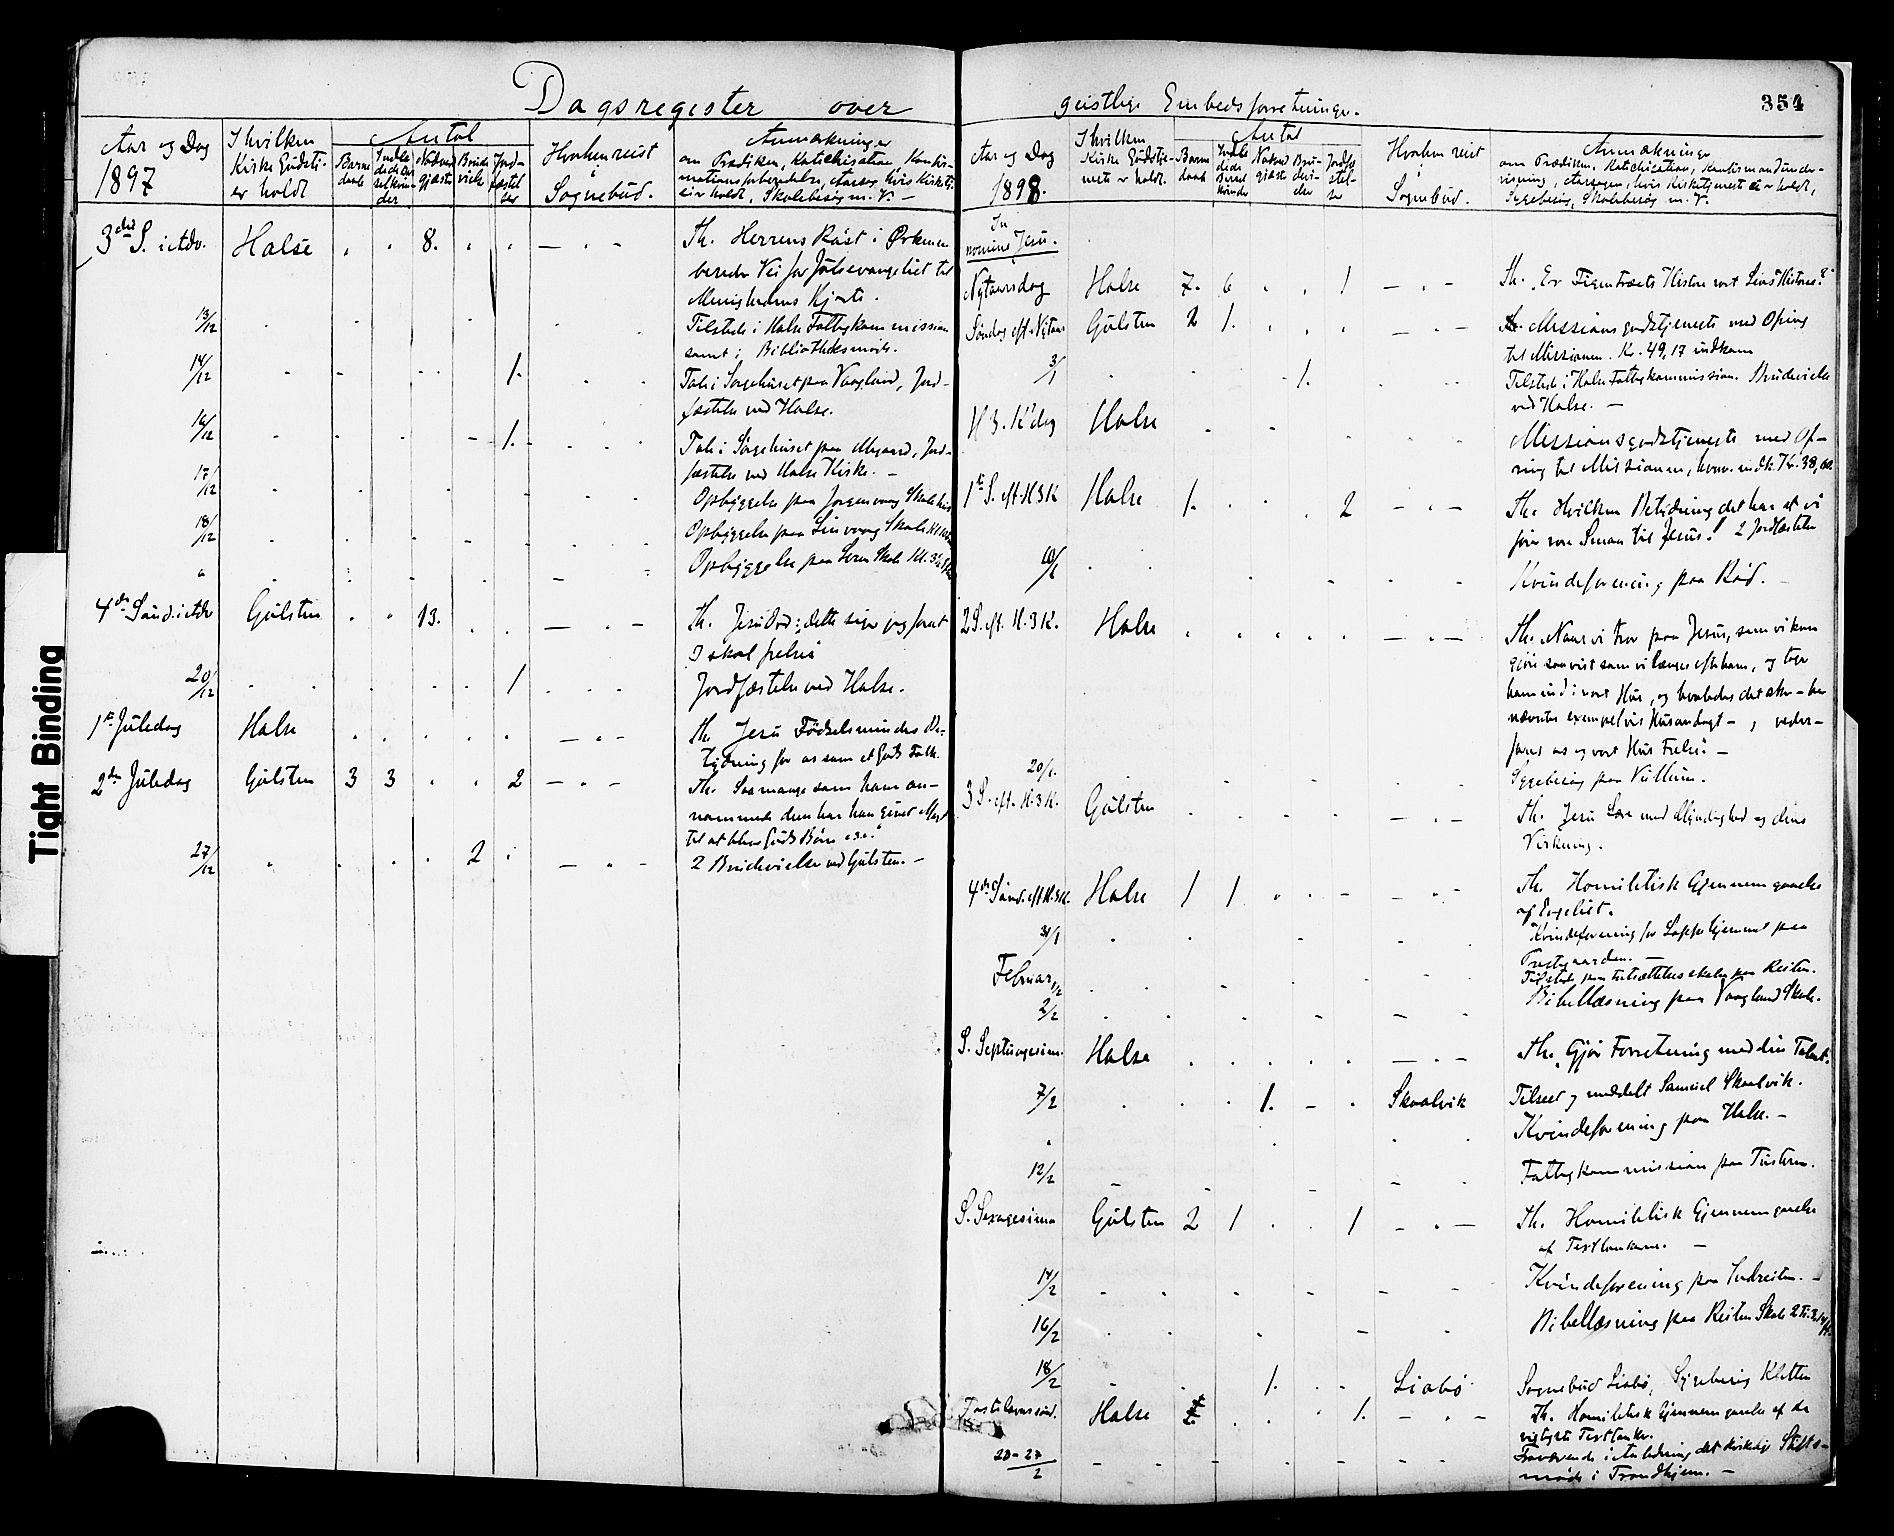 Dagsregister over
Aar og Dag
1897
I hvilken
Kirke Gudstj.
er holdt
Antal
Barne
daab
Nadver
gjæster
Brude
vielser
Jord-
fæstel
ser
Hvorhen reist
i
Sognebud.
Anmærkninger
om Prædiken, Katechisation Konfir-
mationsforberedelse, Aarsag, hvis Kirketj.
ei er holdt, Skolebesøg m. V. -
3die S. i Adv. Halse . . 8. . . — . -
Th. Herrens Røst i Ørkenen
bereder Vei for Juleevangeliet til
Menighedens Hjerte.
13/12
Tilstede i Halse Fattigkommission
samt i Bibliotheksmøde.
14/12 1.
Tale i Sørgehuset paa Vaagland, Jord-
fæstelse ved Halse.
16/12 1.
Tale i Sørgehuset paa Megaard, Jord-
fæstelse ved Halse Kirke. -
17/12
Opbyggelse paa Skolehus
18/12
Opbyggelse paa Skole
"
Opbyggelse paa Skole Kl. 3
4de Sønd. i Adv Gulsten . . 13. . . — . -
Th. Jesu Ord: dette siger jeg forat
I skal frelses
20/12 1
Jordfæstelse ved Halse.
1ste Juledag Halse
Th. Jesu Fødselsmindes Be-
tydning for os som et Guds Folk.
2den Juledag Gulsten 3 3 . . 2 — . -
Th. Saa mange som ham an-
nammede dem har han givet Magt
til at blive Guds Børn o.s.v.
27/12 2
2 Brudevielser ved Gulsten. -
geistlige Embedsforretninger.
354
Aar og Dag
1898.
I hvilken
Kirke Gudstje-
neste er holdt.
Antal
Barne
daab
Nadver
gjæster
Bru-
devi-
elser
Jordfæ
stel-
ser
Hvorhen reist
i
Sognebud.
Anmærkninger
om Prædiken, Katechisation, Konfirmandunder-
visning, Aarsagen, hvis Kirketjeneste ei er holdt,
Sygebesøg, Skolebesøg m. V.
In
nomine Jesu.
Nytaarsdag Halse 7. 6 . . 1 — . -
Th. "Er Figentræets Historie vort Livs Historie?"
Søndag eft. Nytaar Gulsten 2 1.
Missionsgudstjeneste med Ofring
til Missionen. Kr. 49,17 indkom
3/1 1.
Tilstede i Halse Fattigkommission. Brudevielse
ved Halse. -
H. 3. K. dag Halse
Missionsgudstjeneste med Of-
ring til Missionen, hvorv. indk. Kr. 38,00.
1ste S. eft. H3K Halse 1. . . . 2 - . -
Th. Hvilken Betydning det har at vi
fører vore Smaa til Jesus! 2 Jordfæstelser
Kvindeforening paa Rød.
2 S. eft. H. 3 K. Halse
Th. Naar vi tror paa Jesus, som vi kan
gjøre saavist som vi længes efter ham, og tage
ham ind i vort Hus, og hvorledes det sker - her
nævntes exempelvis Husandagt -, veder-
fares os og vort Hus Frelse. -
20/1.
Sygebesøg paa
3 S. eft. H. 3 K. Gulsten
Th. Jesu Lære med Myndighed og dens
Virkning.
4de Sønd. eft H. 3 K. Halse 1 1
Th. Homiletisk Gjennemgaaelse
af Evgeliet.
31/1
Kvindeforening for Lappehjemmet paa
Prestgaarden. -
Februar 1/2
2/2
Bibellæsning paa Vaagland Skole.
S. Septuagesima Halse
Th. Gjør Forretning med din Talent.
7/2 1. Skaalvik
Tilseet og meddelt Samuel Skaalvik.
"
Kvindeforening paa Halse. -
12/2
Fattigkommission paa Tusteren.
S. Sexagesima Gulsten 2 1 . . 1 - . -
Th. Homiletisk Gjennemgaaelse
af Texttankerne. -
14/2
Kvindeforening paa Indreiten. -
16/2
Bibellæsning paa Reiten Skole
18/2 1. Liabø
Sognebud Liabø, Sygebesøg Kletten
Fastelavnssønd. Halse 1.
Th. Homiletisk Gjennemgaaelse af de
vigtigste Texttanker.
23-27/2
Fraværende i Anledning det kirkelige Stifts-
møde i Trondhjem. -
Tight Binding